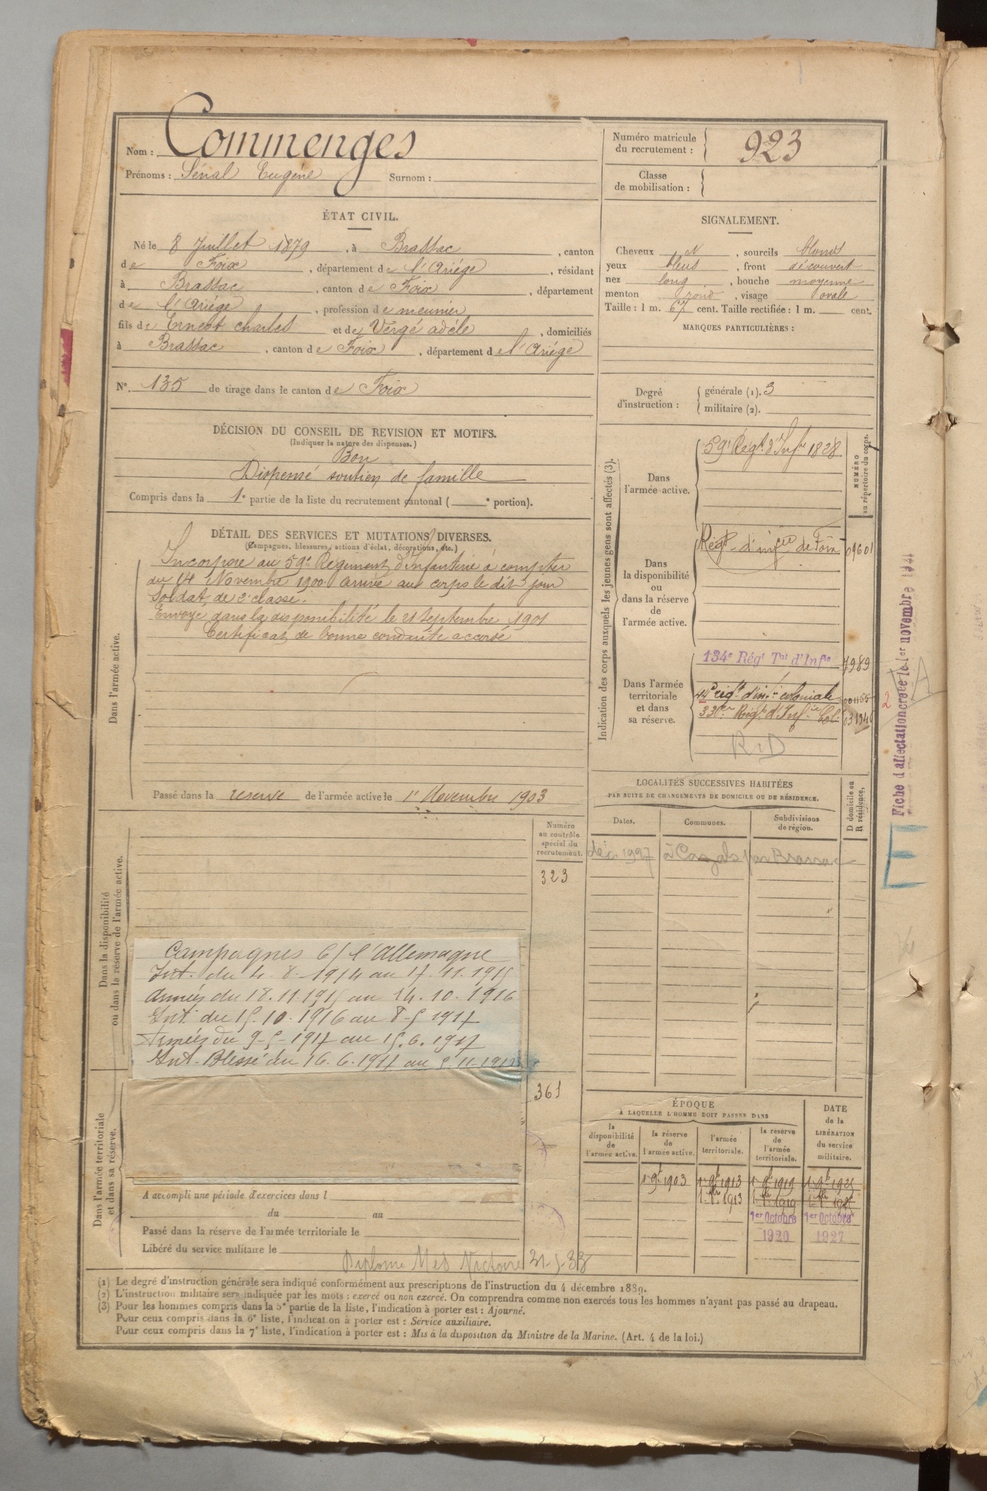 Nom : Commenges
Prénoms : Sérial Eugène Surnom :
Numéro matricule
du recrutement : 923
Classe
de mobilisation :
ÉTAT CIVIL.
Né le 8 Juillet 1879, à Brassac, canton
de Foix, département de l'Ariége, résidant
à Brassac, canton de Foix, département
de l'Ariége, profession de meunier
fils de Ernest Charles et de Vergé adèle, domiciliés
à Brassac, canton de Foix, département de l'Ariége
N° 135 de tirage dans le canton de Foix
SIGNALEMENT.
Cheveux N, sourcils blonds
yeux bleus, front découvert
nez long, bouche moyenne
menton rond, visage ovale
Taille : 1 m. 67 cent. Taille rectifiée : 1 m. cent.
MARQUES PARTICULIÈRES :
Degré
d'instruction :
générale (1). 3
militaire (2).
DÉCISION DU CONSEIL DE REVISION ET MOTIFS.
(Indiquer la nature des dispenses.)
Bon
Dispensé soutien de famille
Compris dans la 1e partie de la liste du recrutement cantonal ( e portion).
DÉTAIL DES SERVICES ET MUTATIONS DIVERSES.
(Campagnes, blessures, actions d'éclat, décorations, etc.)
Dans l'armée active.
Incorporé au 59e Régiment d'infanterie à compter
du 14 Novembre 1900 arrivé au corps le dit jour
Soldat de 2e classe.
Envoyé dans la disponibilité le 21 Septembre 1901
Certificat de bonne conduite accordé
Passé dans la réserve de l'armée active le 1r Novembre 1903
Indication des corps auxquels les jeunes gens sont affectés (3).
NUMÉRO
au répertoire du corps.
Dans
l'armée active.
59e Régt d'Infie 1828
Dans
la disponibilité
ou
dans la réserve
de
l'armée active.
Régt d'infie de Foix 01601
Dans l'armée
territoriale
et dans
sa réserve.
134e Régt Tal d'Infie 7989
44e régt d'inf. coloniale 001155
33e Régt d'Infie Col.
R D
Fiche d'affectation créée le 1er novembre
2
LOCALITÉS SUCCESSIVES HABITÉES
PAR SUITE DE CHANGEMENTS DE DOMICILE OU DE RÉSIDENCE.
Dates.
Communes.
Subdivisions
de région.
D domicile ou
R résidence.
déc 1927 à Cazals par Brassac
Dans la disponibilité
ou dans la réserve de l'armée active.
Numéro
au contrôle
spécial du
recrutement.
323
Campagnes C/ l'Allemagne
Int. du 4.8.1914 au 17.11.1915
Armées du 18.11.1915 au 14.10.1916
Int. du 15.10.1916 au 8-5 1917
Armées du 9-5-1917 au 15.6.1917
Int. Blessé du 16.6.1917 au 5.11.1917
Dans l'armée territoriale
et dans sa réserve.
361
A accompli une période d'exercices dans l
du au
Passé dans la réserve de l'armée territoriale le
Libéré du service militaire le
Diplome Med Victoire 21 5 38
ÉPOQUE
À LAQUELLE L'HOMME DOIT PASSER DANS
la
disponibilité
de
l'armée active.
la réserve
de
l'armée active.
l'armée
territoriale.
la réserve
de
l'armée
territoriale.
DATE
de la
LIBÉRATION
du service
militaire.
1r 9bre 1903 1r 9bre 1913 1r 9bre 1919
1er Octobre 1er Octobre
1920 1927
(1) Le degré d'instruction générale sera indiqué conformément aux prescriptions de l'instruction du 4 décembre 1889.
(2) L'instruction militaire sera indiquée par les mots : exercé ou non exercé. On comprendra comme non exercés tous les hommes n'ayant pas passé au drapeau.
(3) Pour les hommes compris dans la 5e partie de la liste, l'indication à porter est : Ajourné.
Pour ceux compris dans la 6e liste, l'indication à porter est : Service auxiliaire.
Pour ceux compris dans la 7e liste, l'indication à porter est : Mis à la disposition du Ministre de la Marine. (Art. 4 de la loi.)